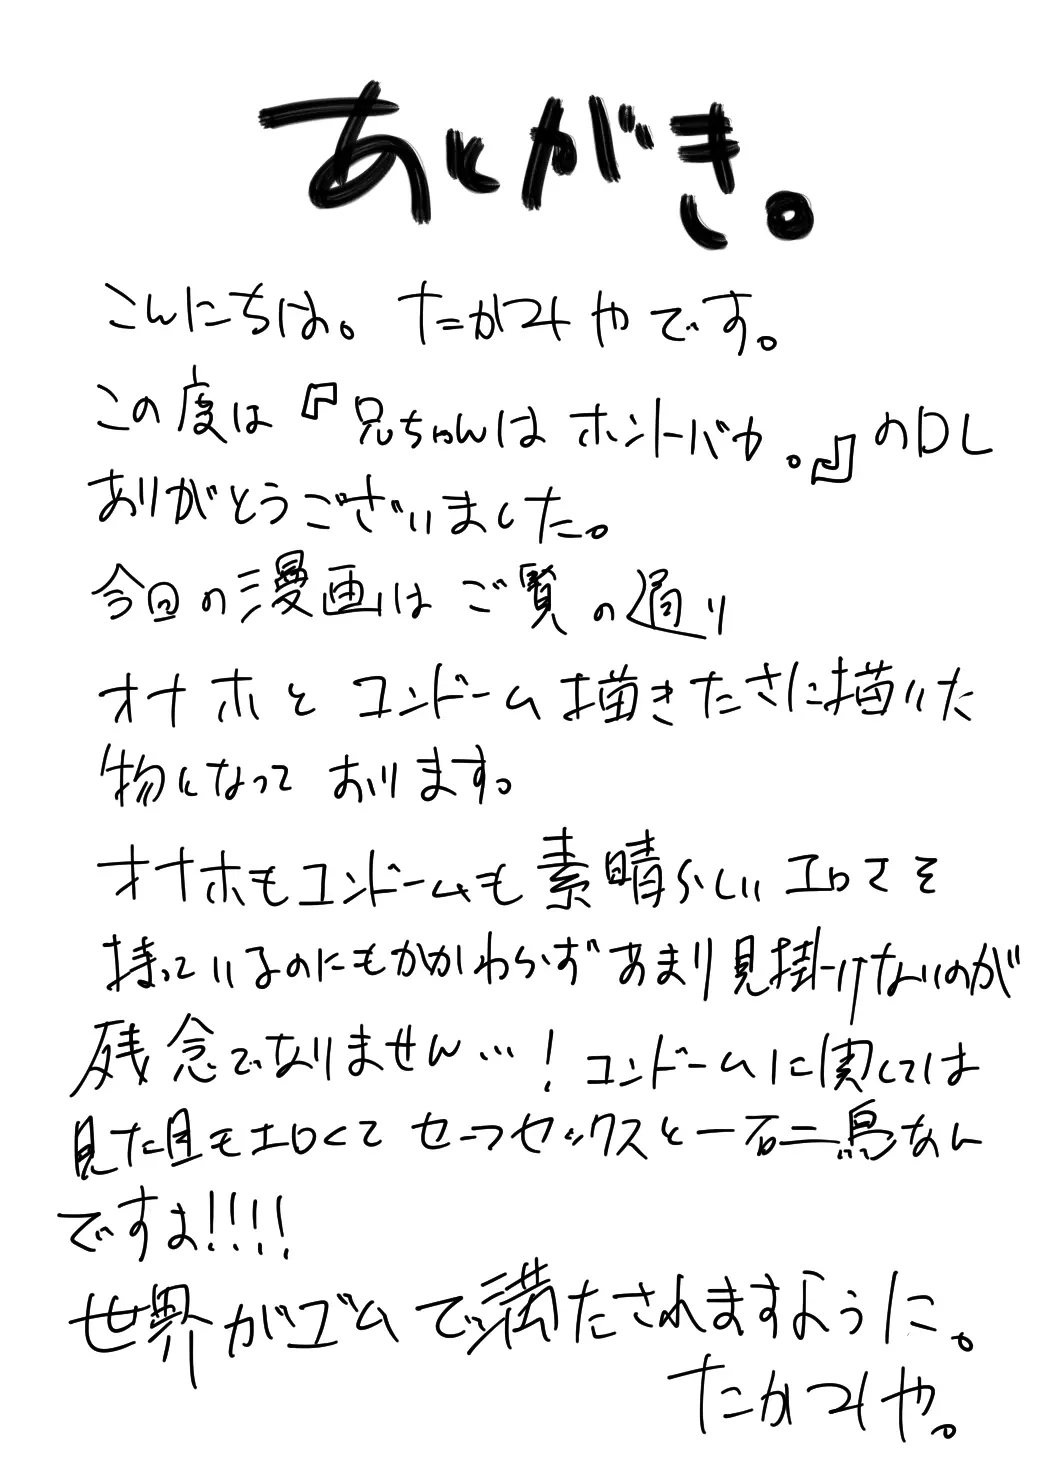 あとがき。
こんにちは。たかみやです。
この度は『兄ちゃんはホントバカ。』のDL
ありがとうございました。
今回の漫画はご覧の通り
オナホとコンドーム描きたさに描いた
物になっております。
オナホもコンドームも素晴らしいエロさを
持っているのにもかかわらずあまり見掛けないのが
残念でなりません…！コンドームに関しては
見た目もエロくてセーフセックスと一石二鳥なん
ですよ!!!!
世界がゴムで満たされますように。
たかみや。